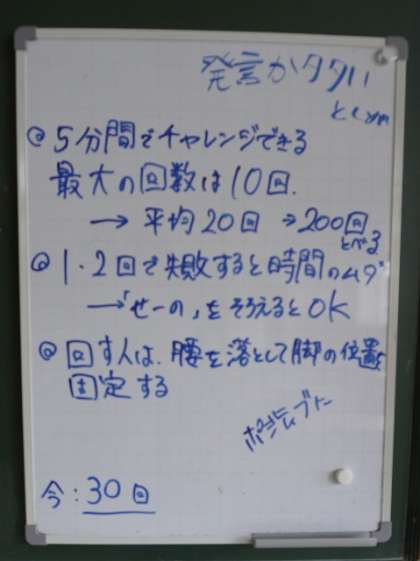 発言がタタい
@ 5分間でチャレンジできる
最大の回数は10回.
→ 平均20回 → 200回
とべる
@ 1・2回で失敗すると時間のムダ
→「せーの」をそろえるとOK
@ 回す人は、腰を落として脚の位置を
固定する
ポジティブに
今:30回